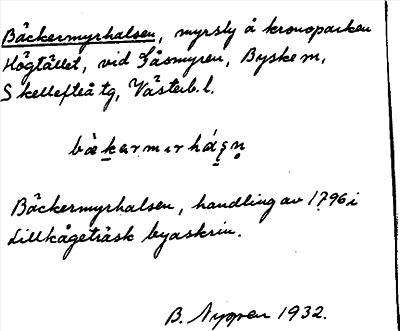 Bäckermyrhalsen, myrsly å kronoparken
Högtället, vid Såsmyren, Byske sn,
Skellefteå tg, Västerb. l.
Bäckermyrhalsen, handling av 1796 i
Lillkågeträsk byaskrin.
B. Nygren 1932.